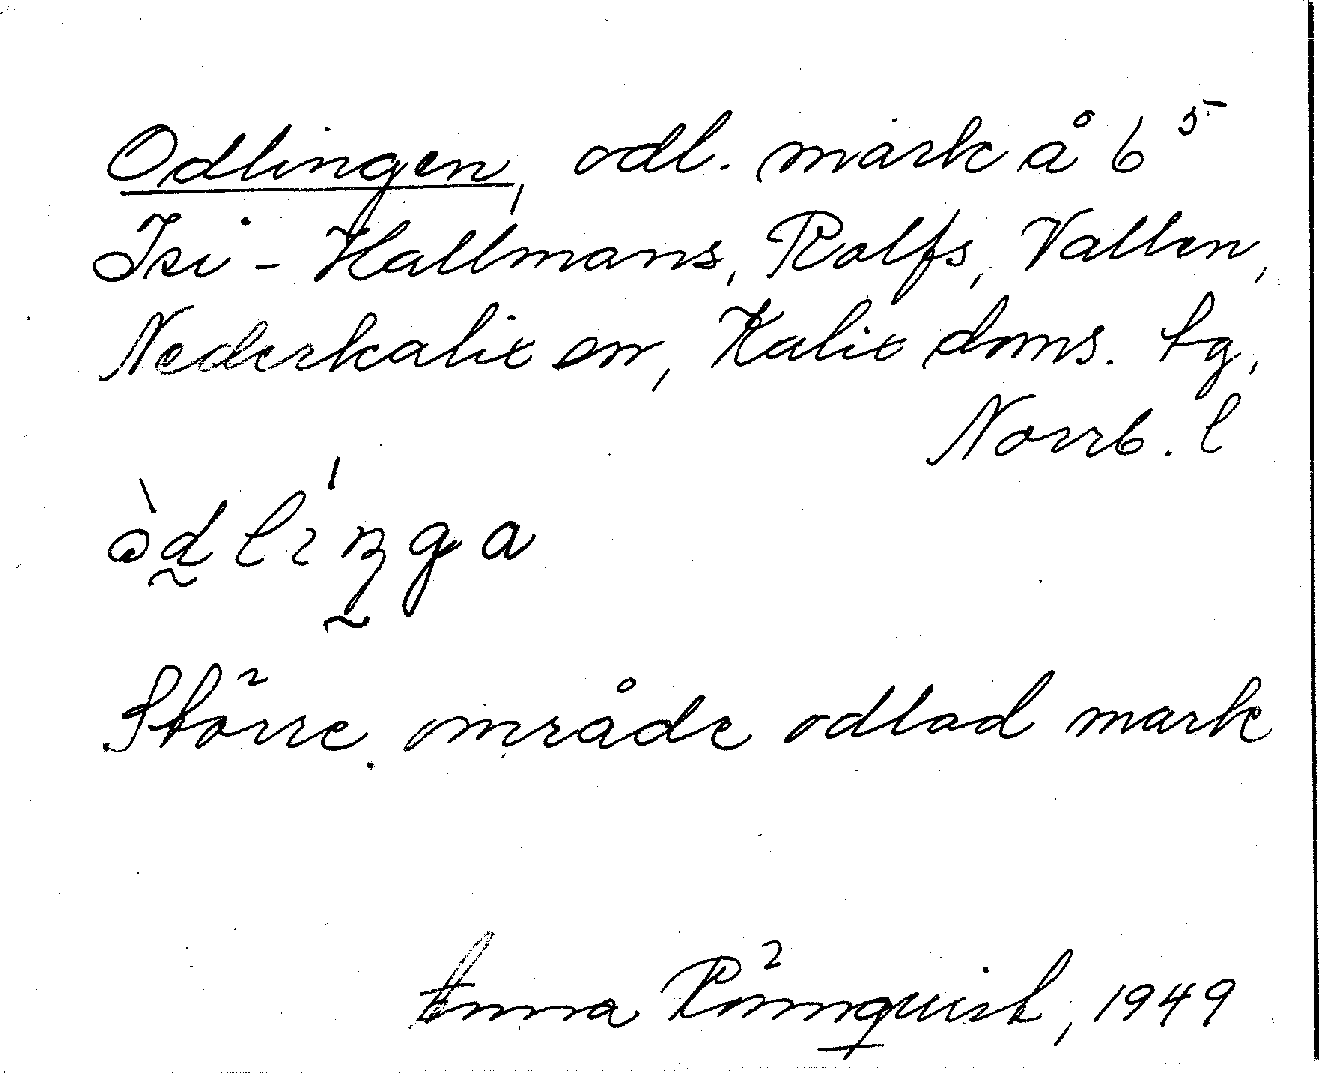 Odlingen, odl. mark å 6⁵
Isi - Hallmans, Rolfs, Vallen,
Nederkalix sn, Kalix doms. tg,
Norrb. l
òd̰lɩ́ŋ̰ga
Större område odlad mark
Anna Rönnquist, 1949